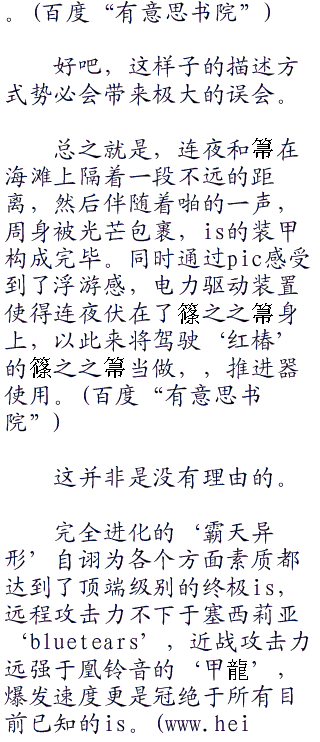 。(百度“有意思书院”)
好吧，这样子的描述方
式势必会带来极大的误会。
总之就是，连夜和箒在
海滩上隔着一段不远的距
离，然后伴随着啪的一声，
周身被光芒包裹，is的装甲
构成完毕。同时通过pic感受
到了浮游感，电力驱动装置
使得连夜伏在了篠之之箒身
上，以此来将驾驶‘红椿’
的篠之之箒当做，，推进器
使用。(百度“有意思书
院”)
这并非是没有理由的。
完全进化的‘霸天异
形’自诩为各个方面素质都
达到了顶端级别的终极is，
远程攻击力不下于塞西莉亚
‘bluetears’，近战攻击力
远强于凰铃音的‘甲龍’，
爆发速度更是冠绝于所有目
前已知的is。(www.hei